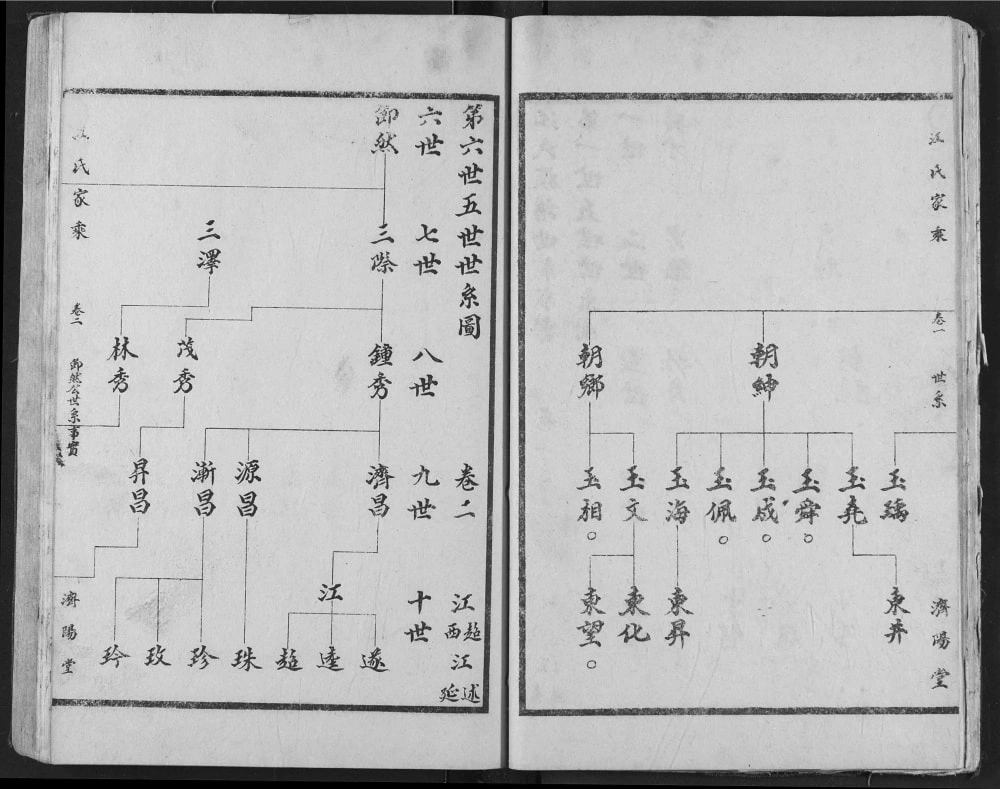 江氏家乘
卷一
世系
濟陽堂
朝紳
朝鄉
玉瑀
玉堯
玉舜
玉成
玉佩
玉海
玉文
玉相
東井
東昇
東化
東望
第六世五世世系圖
卷二
六世
七世
八世
九世
十世
御然
三際
三澤
鍾秀
茂秀
林秀
濟昌
源昌
漸昌
昇昌
江
遂
逵
超
珠
珍
玫
玲
江超江述
西
延
江氏家乘
卷二
御然公世系事實
濟陽堂